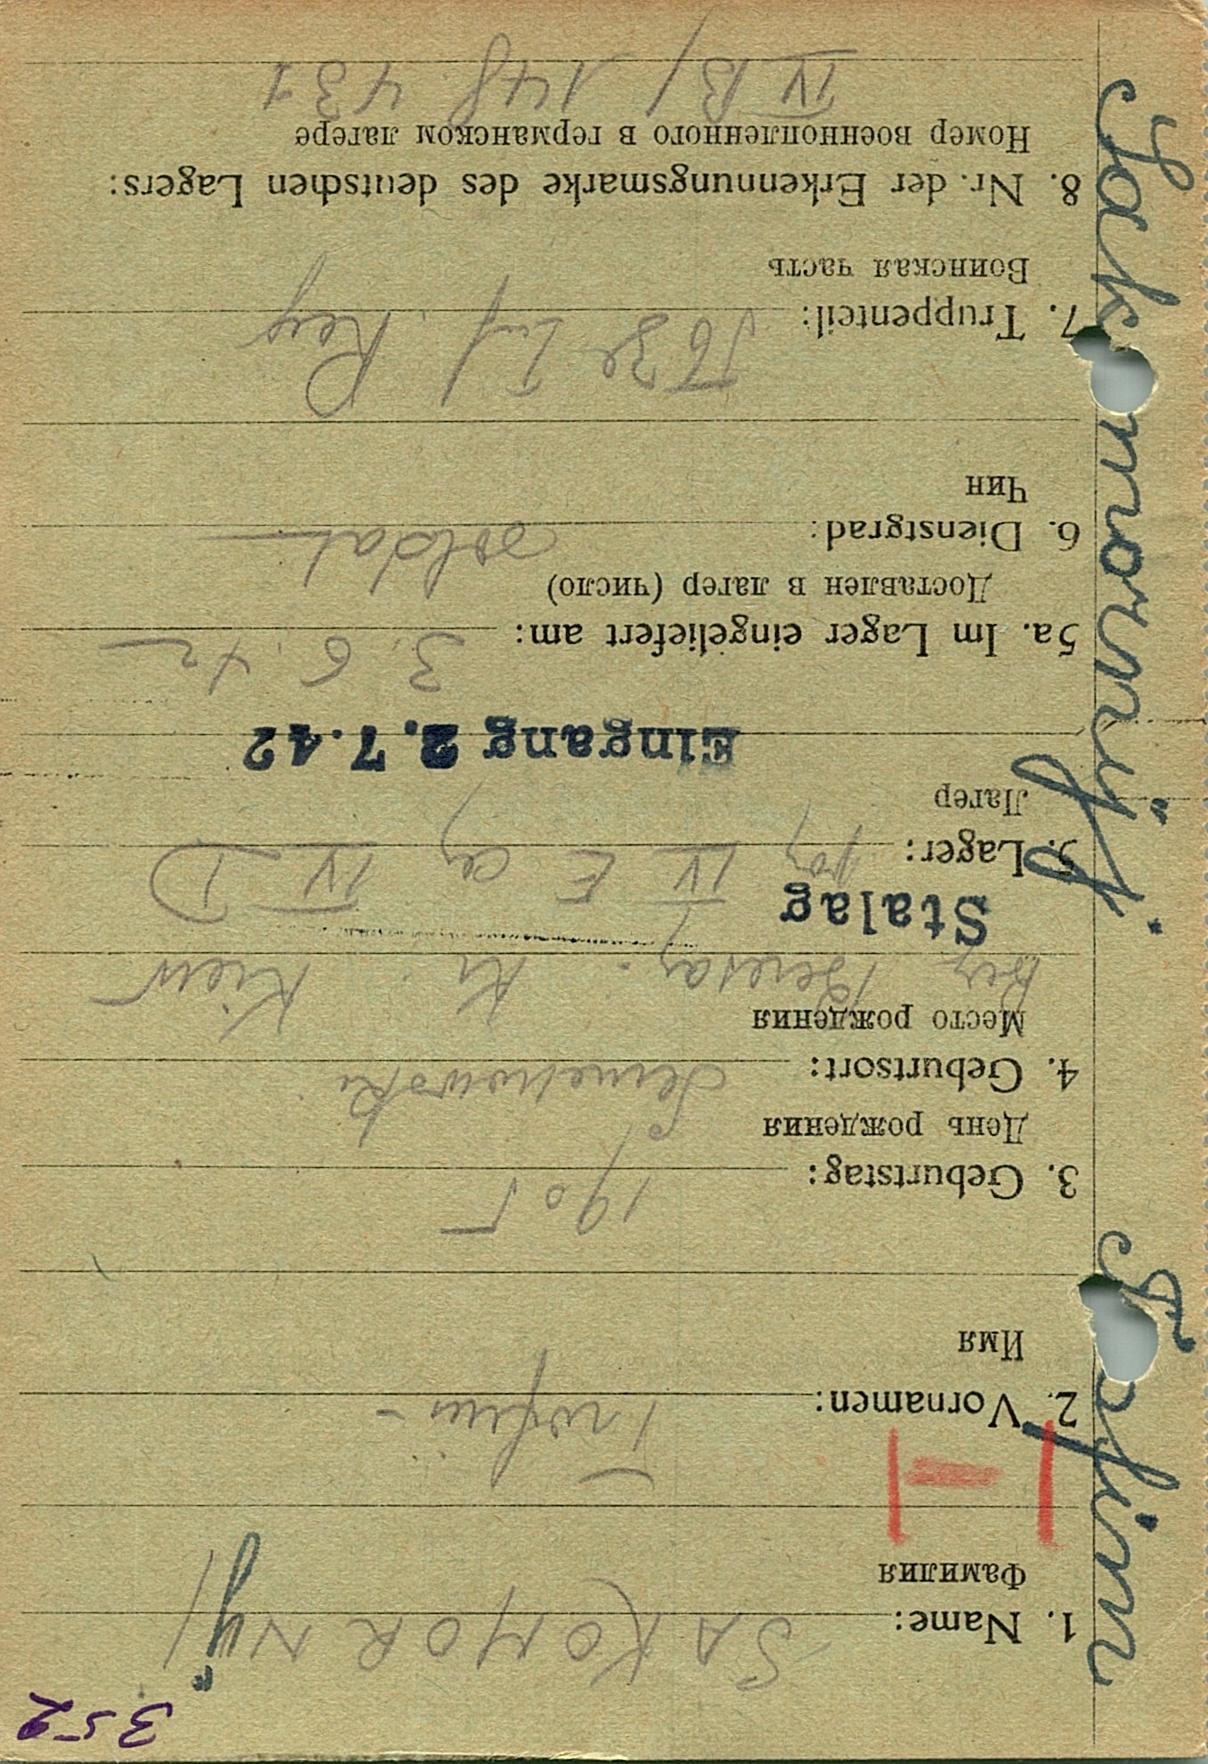 352
1. Name: SAKOMORNYJ
Фамилия
H
2. Vornamen: Trofim
Имя
3. Geburtstag: 1905
День рождения
4. Geburtsort:
Место рождения
Kiew
Stalag
5. Lager: IV E IV D
Лагер
Eingang 2.7.42
5a. Im Lager eingeliefert am: 3. 6. 42
Доставлен в лагер (число)
6. Dienstgrad: soldat
Чин
7. Truppenteil: Inf. Reg
Воинская часть
8. Nr. der Erkennungsmarke des deutschen Lagers:
Номер военнопленного в германском лагере
IV B / 148 431
Sakomornijj Trofim